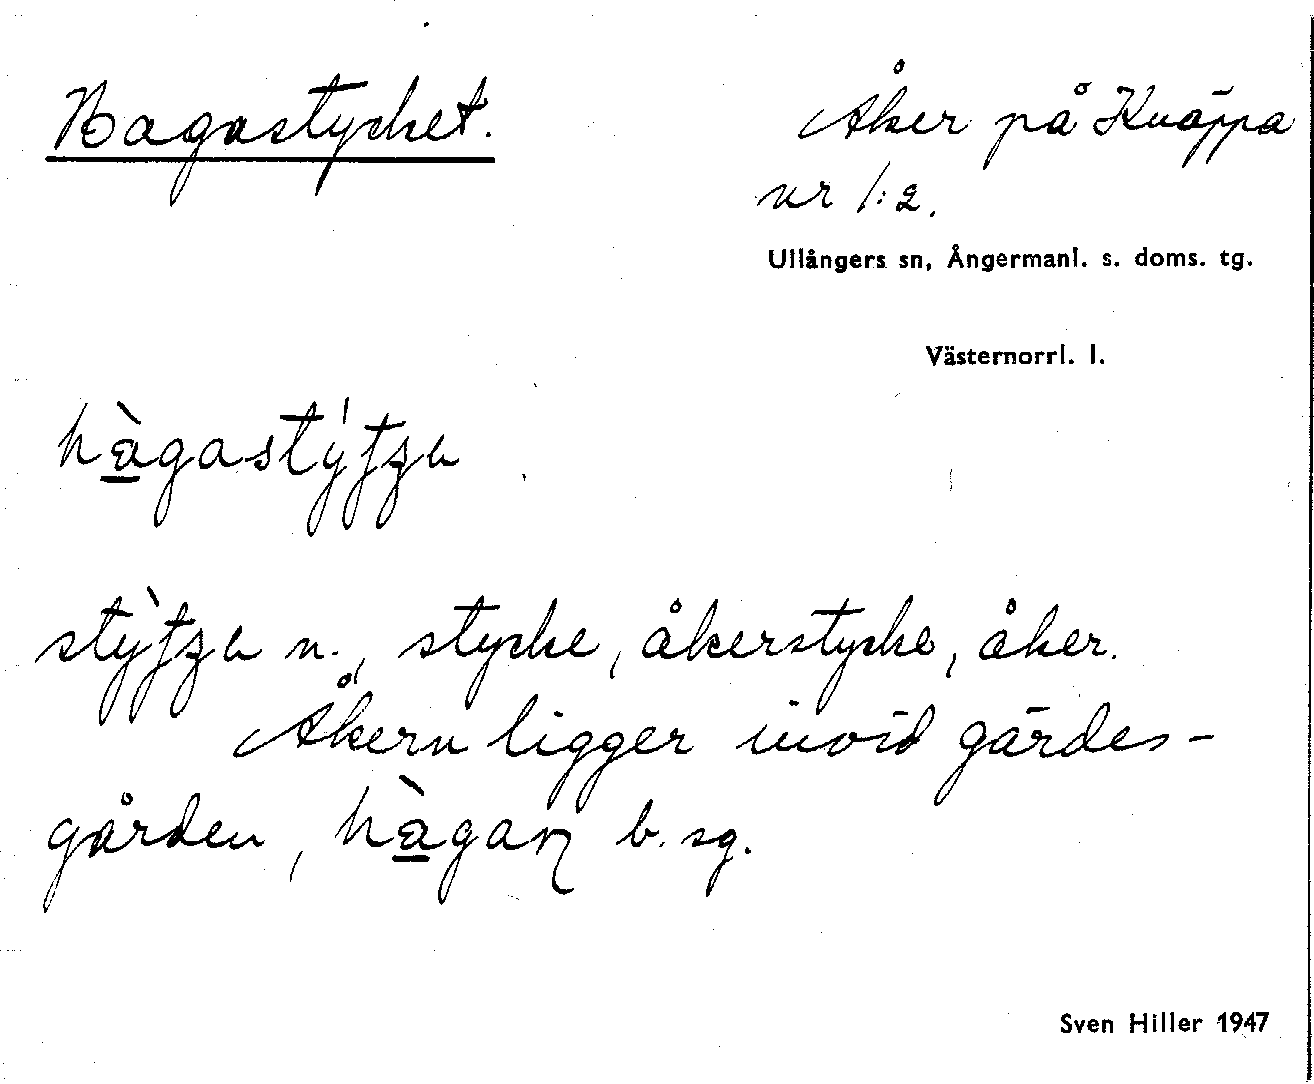 Hagastycket.
Åker på Knäppa
nr 1:2.
Ullångers sn, Ångermanl. s. doms. tg.
Västernorrl. l.
n., stycke, åkerstycke, åker.
Åkern ligger invid gärdes-
gården, hàgaɳ b. sg.
Sven Hiller 1947